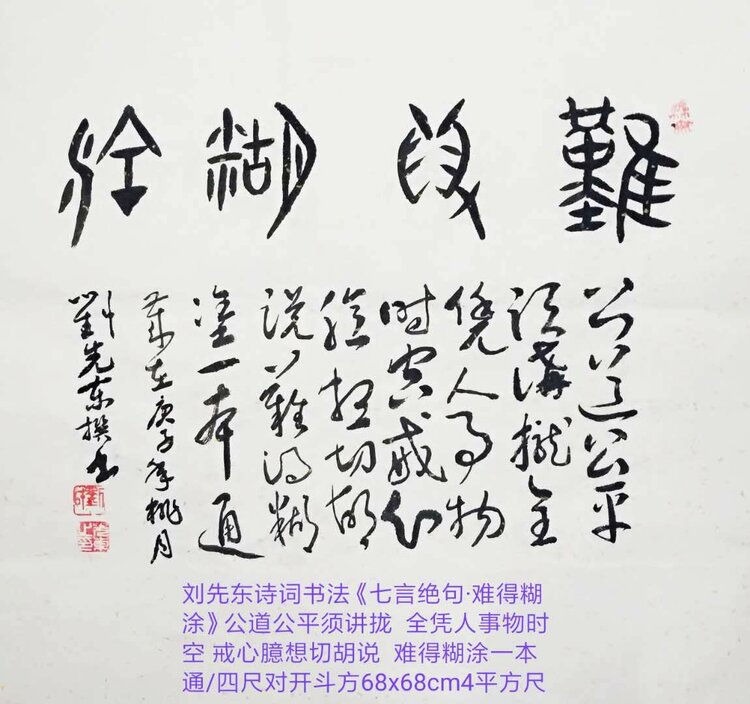 難得糊涂
公道公平
须講攏全
凭人事物
时空戒心
臆想切胡
说難得糊
塗一本通
歲在庚子年桃月
劉先東撰书
刘先东诗词书法《七言绝句·难得糊
涂》公道公平须讲拢 全凭人事物时
空 戒心臆想切胡说 难得糊涂一本
通/四尺对开斗方68x68cm4平方尺